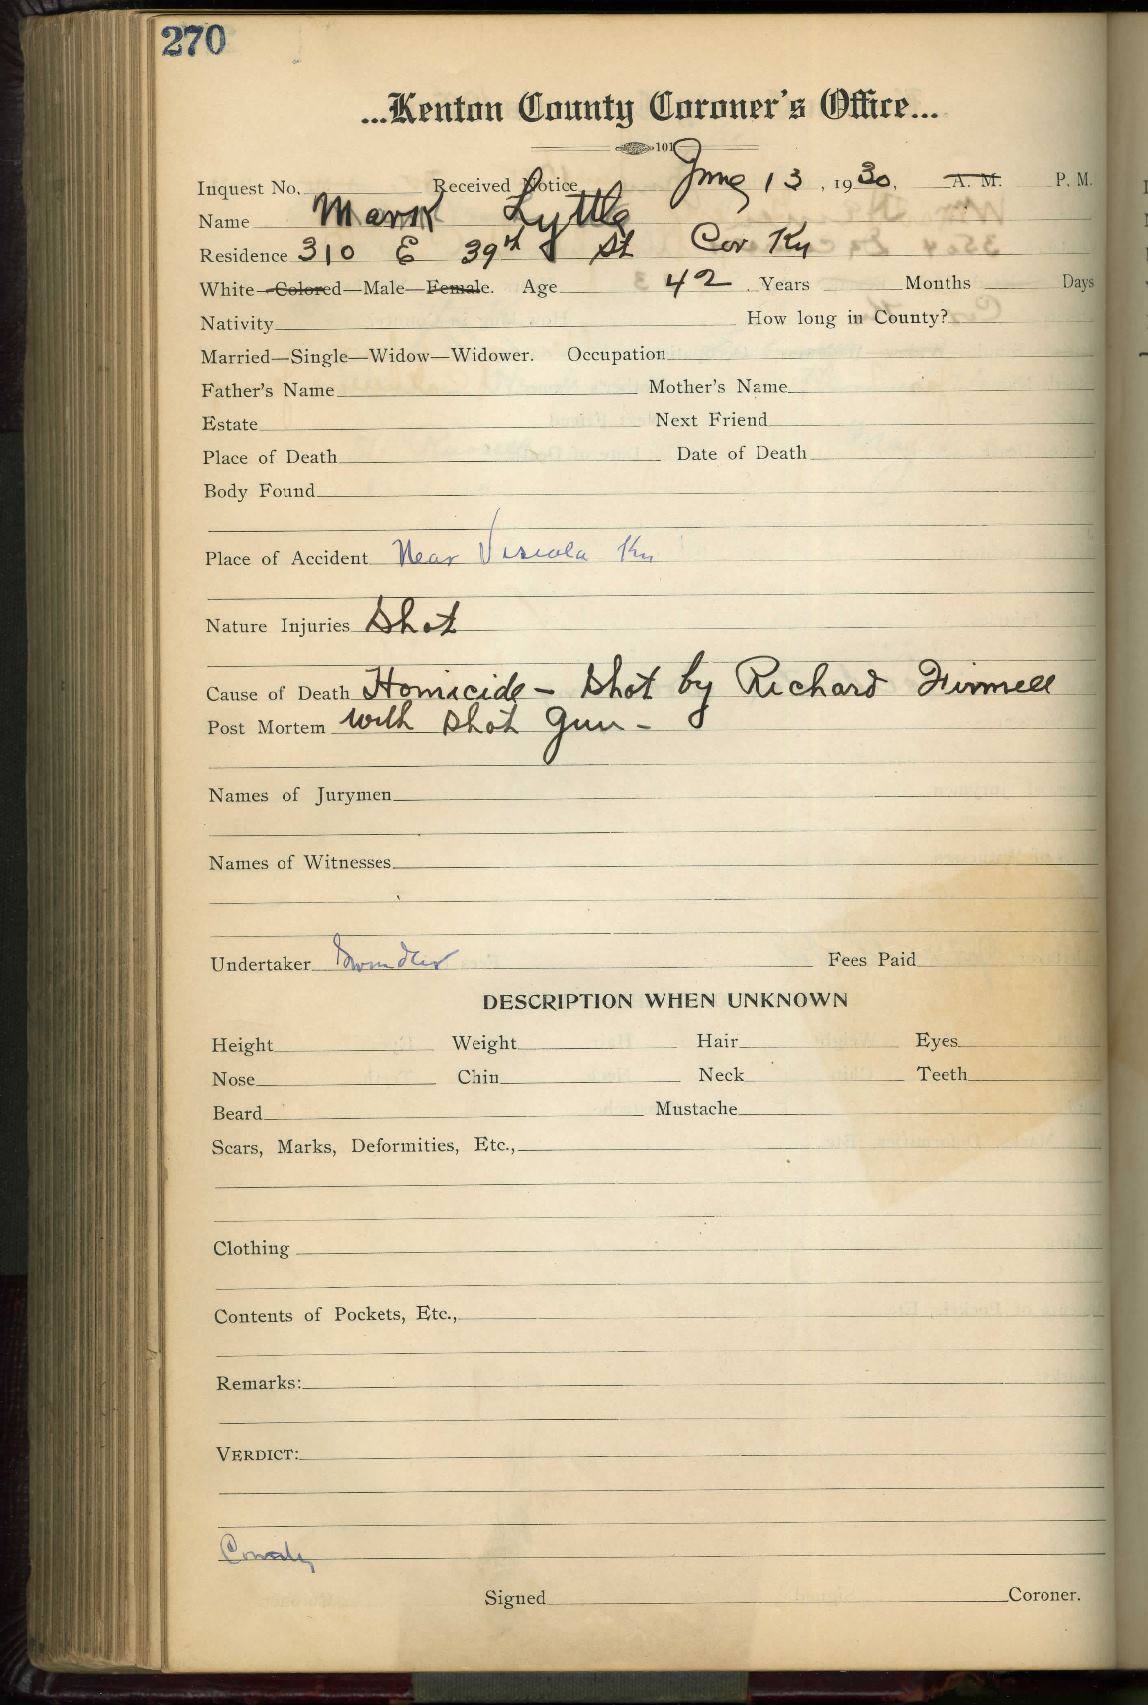 270
...Kenton County Coroner's Office...
101
Inquest No. Received Notice June 13, 1930, A. M. P. M.
Name Mark Lyttle
Residence 310 E 39th St Cov Ky
White—Colored—Male—Female. Age 42 Years Months Days
Nativity How long in County?
Married—Single—Widow—Widower. Occupation
Father's Name Mother's Name
Estate Next Friend
Place of Death Date of Death
Body Found
Place of Accident Near Visalia Ky
Nature Injuries Shot
Cause of Death Homicide - Shot by Richard
Post Mortem with Shot Gun -
Names of Jurymen
Names of Witnesses
Undertaker Fees Paid
DESCRIPTION WHEN UNKNOWN
Height Weight Hair Eyes
Nose Chin Neck Teeth
Beard Mustache
Scars, Marks, Deformities, Etc.,
Clothing
Contents of Pockets, Etc.,
Remarks:
VERDICT:
County
Signed Coroner.